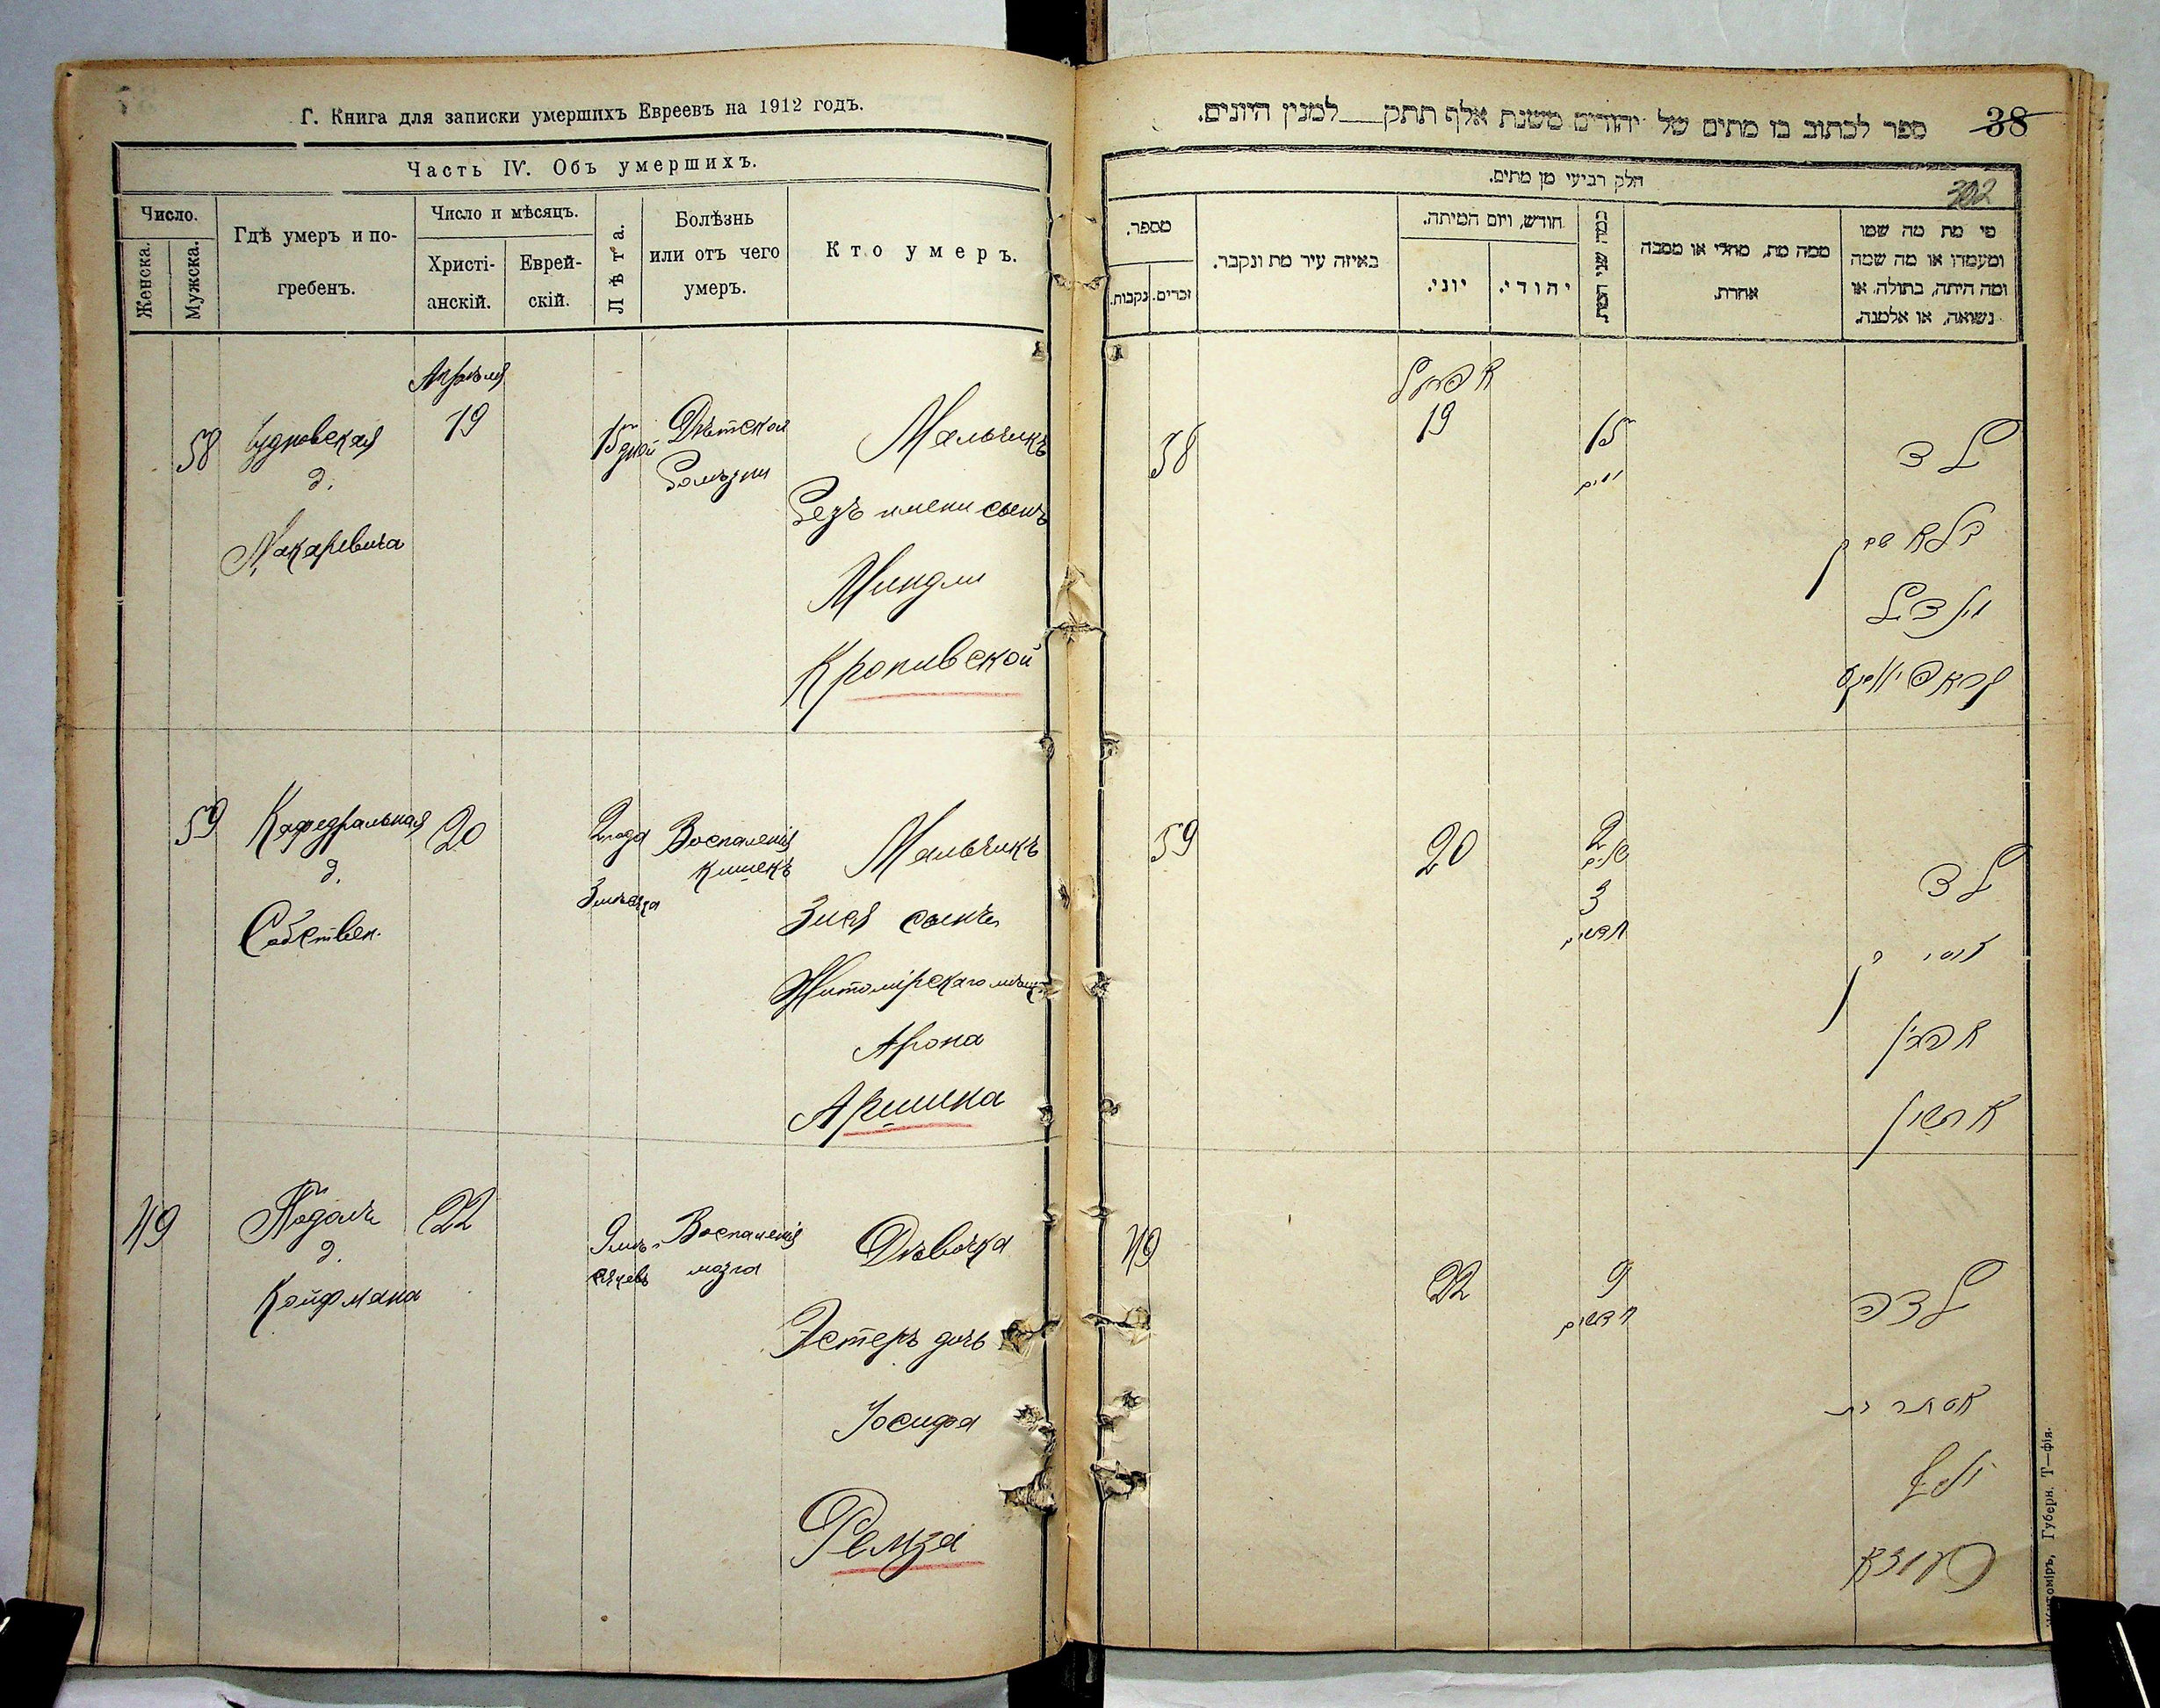 Г. Книга для записки умершихъ Евреевъ на 1912 годъ.
Часть IV. Объ умершихъ.
Число.
Женска.
Мужска.
Гдѣ умеръ и по-
гребенъ.
Число и мѣсяцъ.
Христі-
анскій.
Еврей-
скій.
Лѣта.
Болѣзнь
или отъ чего
умеръ.
Кто умеръ.
Апрѣля
58
Чудновская
д.
Макаревича
19
15
дней
Дѣтской
болѣзни
Мальчикъ
безъ имени сынъ
Миндли
Кропивской
59
Кафедральная
д.
Собствен.
20
2 года
3 мѣсяца
Воспаленія
кишекъ
Мальчикъ
Зися сынъ
Житомірскаго мѣщ.
Арона
Аршина
49
Подолъ
д.
Койфмана
22
9 мѣ-
сяцевъ
Воспаленія
мозга
Дѣвочка
Эстеръ дочь
Іосифа
Ремза
ספר לכתוב בו מתים של יהודים משנת אלף תתק למנין היונים.
38
302
חלק רביעי מן מתים.
מספר.
נקבות.
זכרים.
באיזה עיר מת ונקבר.
חודש, ויום המיתה.
יוני.
יהודי.
כמה שני המת
ממה מת, מחלי או מסבה
אחרת.
מי מת מה שמו
ומעמדו או מה שמה
ומה היתה, בתולה, או
נשואה, או אלמנה.
אפריל
58
19
15
ימים
ילד
בלא שם בן
מינדיל
59
20
2
שנים
3
חדשים
ילד
זוסי בן
אהרן
ארשין
49
22
9
חדשים
ילדה
אסתר בת
יוסף
רעמזא
Житоміръ, Губерн. Т—фія.